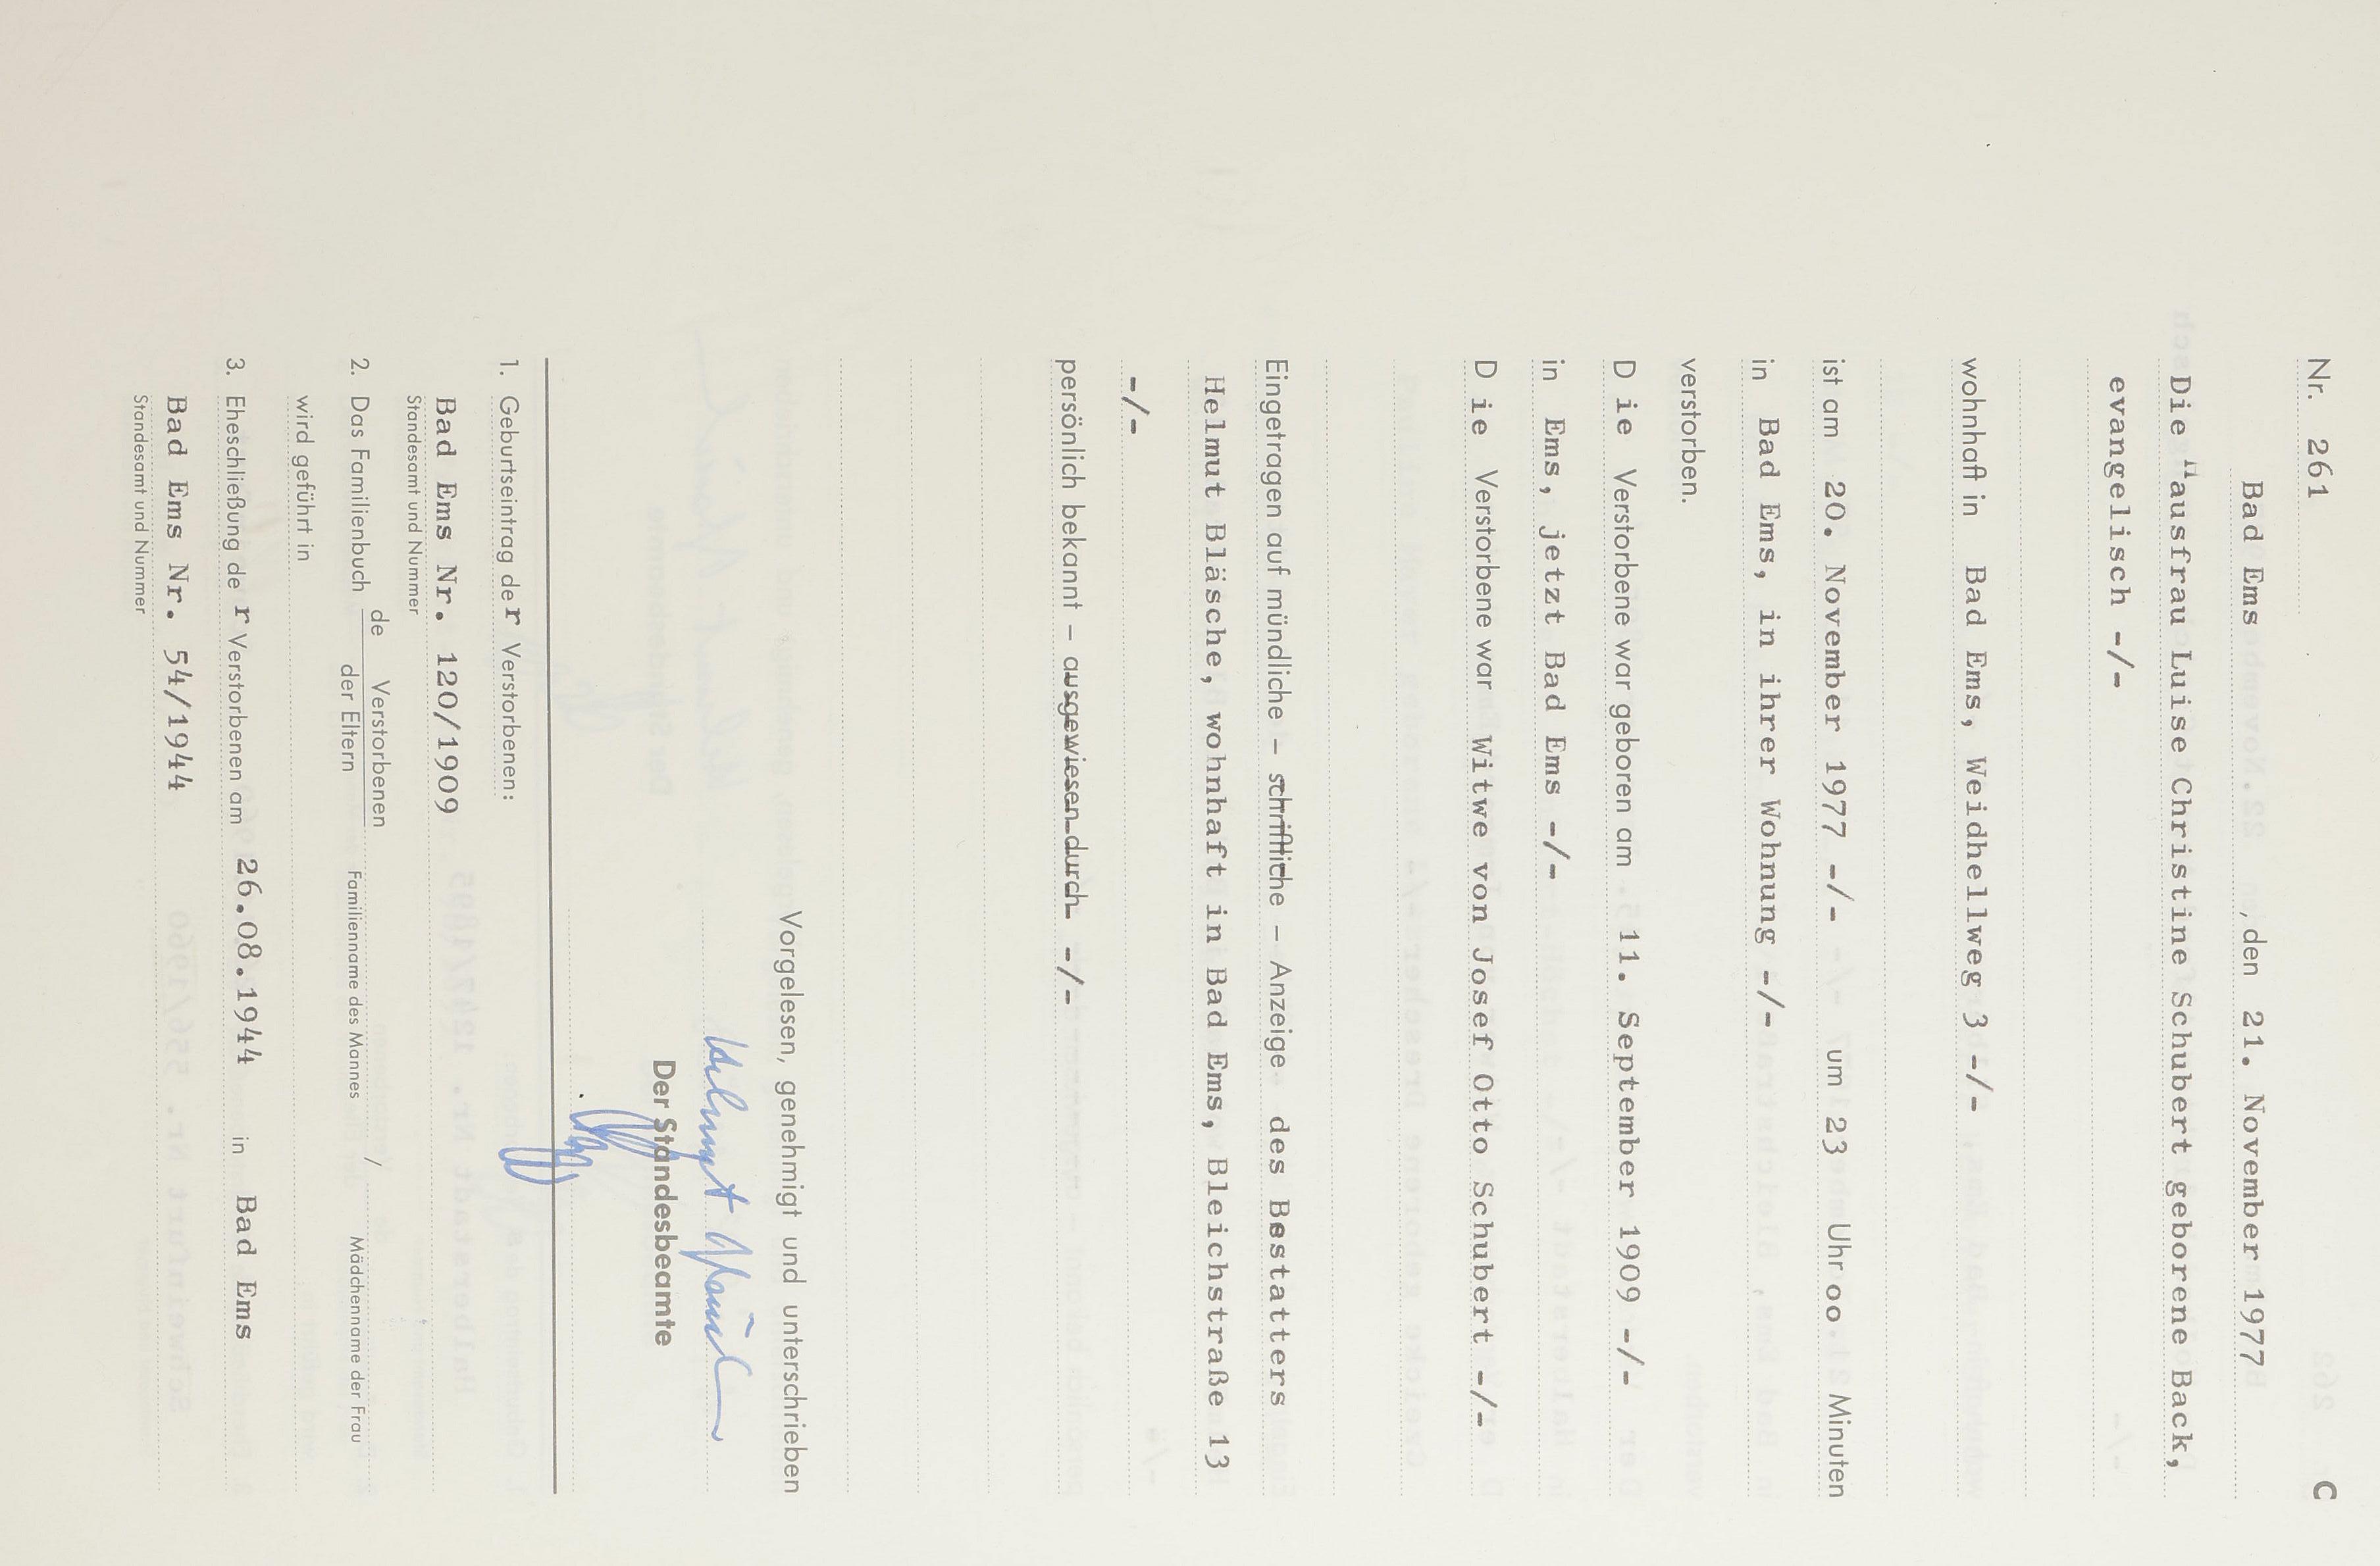 Nr. 261 C
Bad Ems, den 21. November 1977
Die Hausfrau Luise Christine Schubert geborene Back,
evangelisch -/-
wohnhaft in Bad Ems, Weidhellweg 3 -/-
ist am 20. November 1977 -/- um 23 Uhr oo Minuten
in Bad Ems, in ihrer Wohnung -/-
verstorben.
D ie Verstorbene war geboren am 11. September 1909 -/-
in Ems, jetzt Bad Ems -/-
D ie Verstorbene war Witwe von Josef Otto Schubert -/-
Eingetragen auf mündliche – schriftliche – Anzeige des Bestatters
Helmut Bläsche, wohnhaft in Bad Ems, Bleichstraße 13
-/-
persönlich bekannt – ausgewiesen durch -/-
Vorgelesen, genehmigt und unterschrieben
Helmut
Der Standesbeamte
1. Geburtseintrag der Verstorbenen:
Bad Ems Nr. 120/1909
Standesamt und Nummer
2. Das Familienbuch de Verstorbenen / der Eltern
Familienname des Mannes Mädchenname der Frau
wird geführt in
3. Eheschließung de r Verstorbenen am 26.08.1944 in Bad Ems
Bad Ems Nr. 54/1944
Standesamt und Nummer